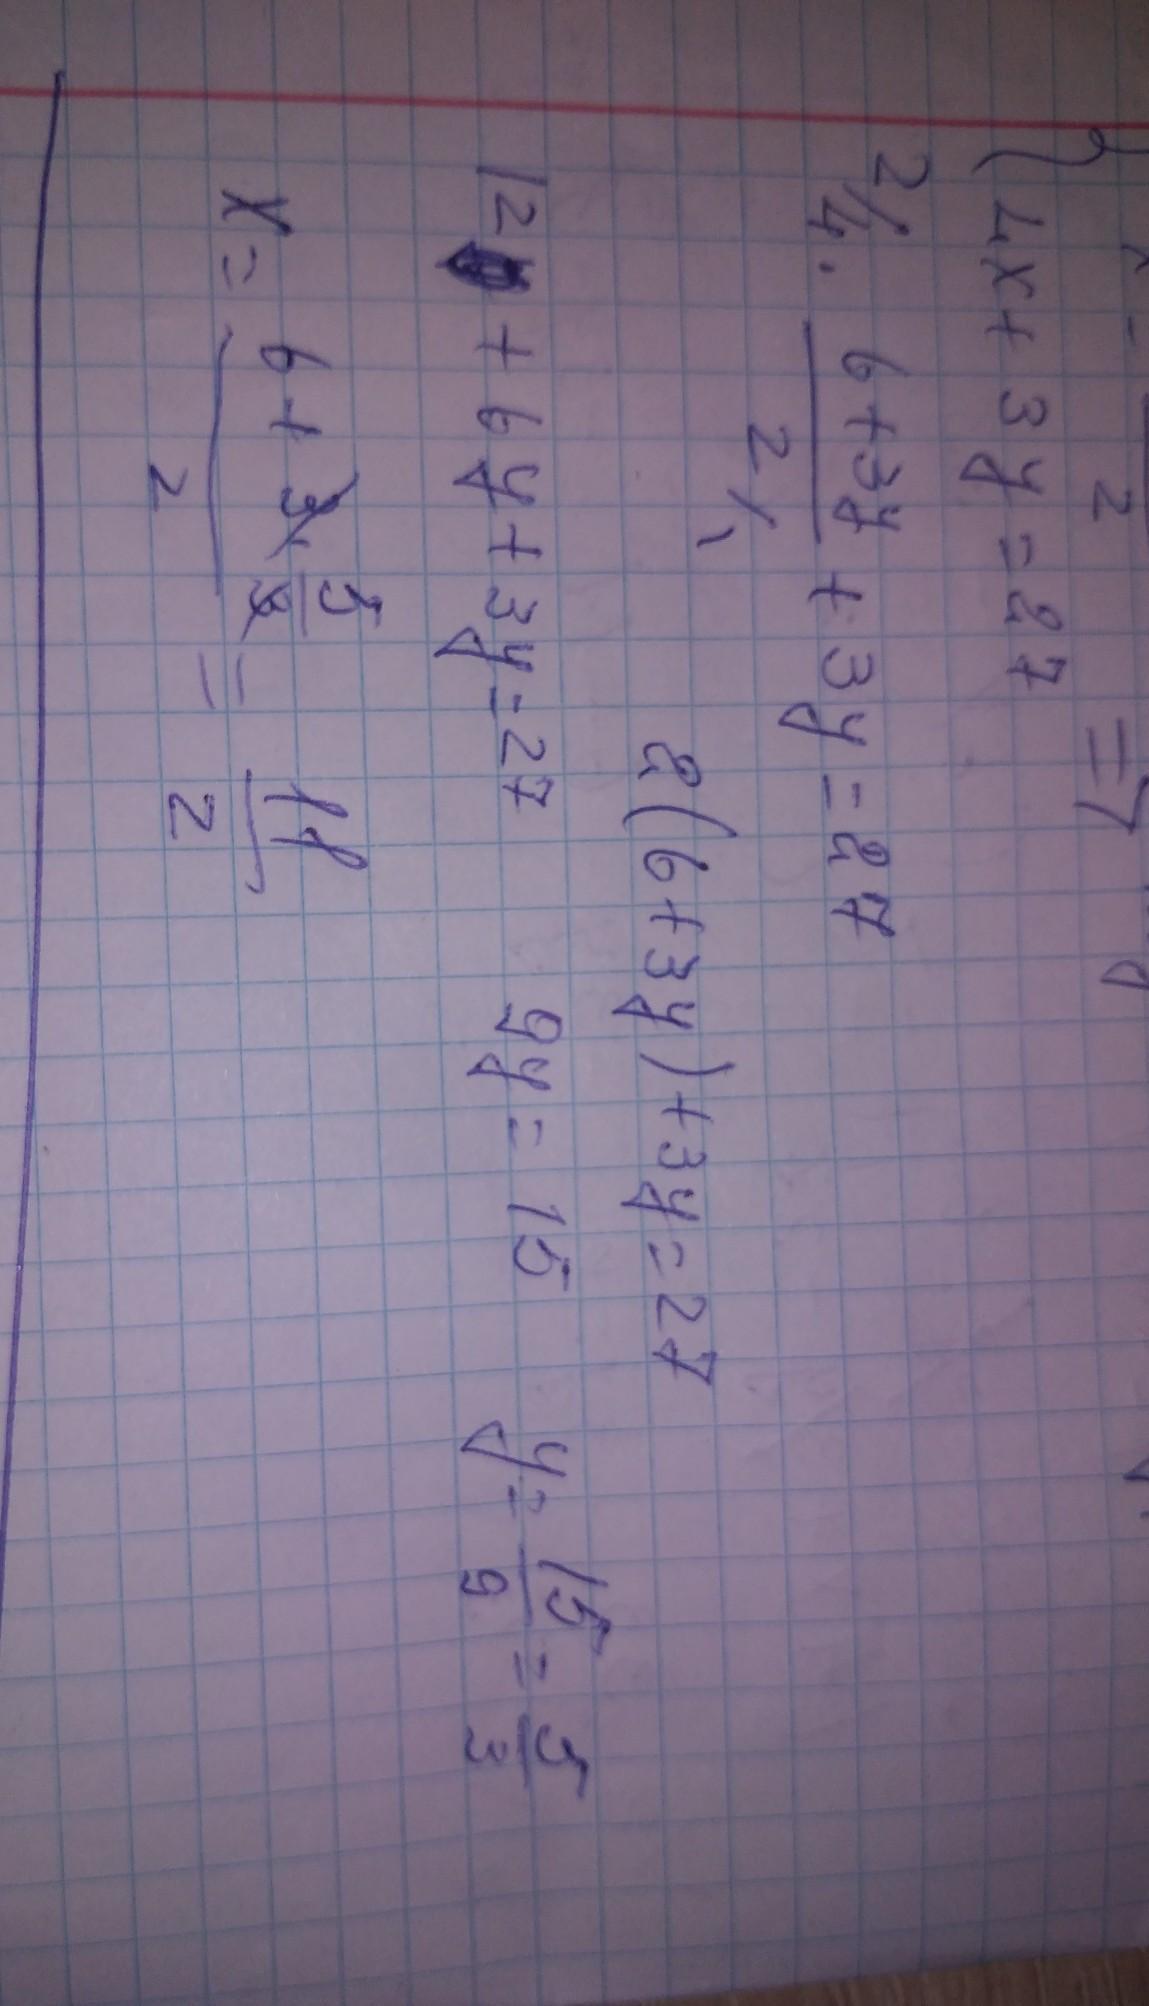 2
4x + 3y = 27
4 · (6 + 3y)/2 + 3y = 27
2(6 + 3y) + 3y = 27
12 + 6y + 3y = 27 9y = 15 y = 15/9 = 5/3
x = (6 + 3 · 5/3)/2 = 11/2